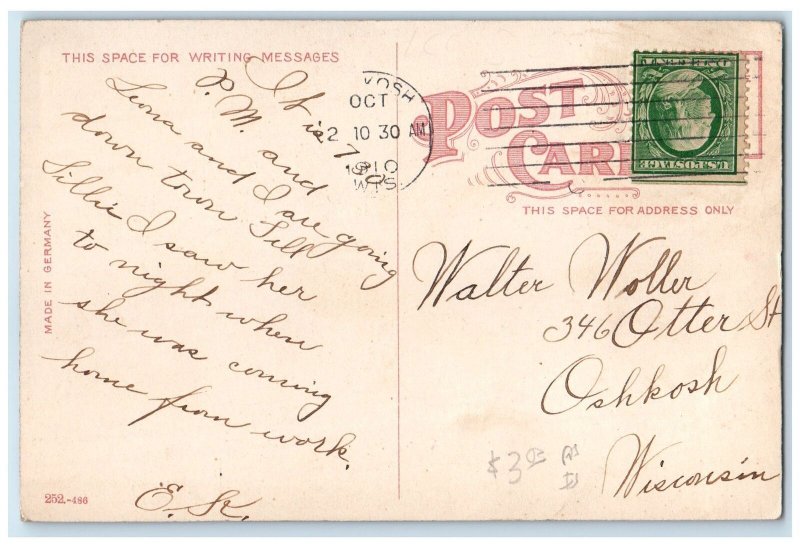 THIS SPACE FOR WRITING MESSAGES
It is 7 30
P. M. and
Leona and I are going
down town Tell
Lillie I saw her
to night when
she was coming
home from work.
E. K.
MADE IN GERMANY
252.-486
KOSH
OCT
2 10 30 AM
1910
WIS.
POST
CARD
U.S. POSTAGE
THIS SPACE FOR ADDRESS ONLY
Walter Woller
346 Otter St
Oshkosh
Wisconsin